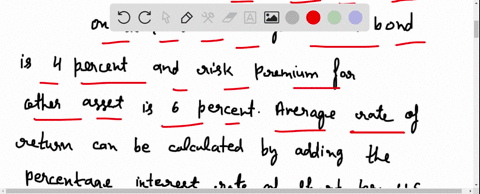 on bond
is 4 percent and risk premium for
other asset is 6 percent. Average rate of
return can be calculated by adding the
percentage interest rate of